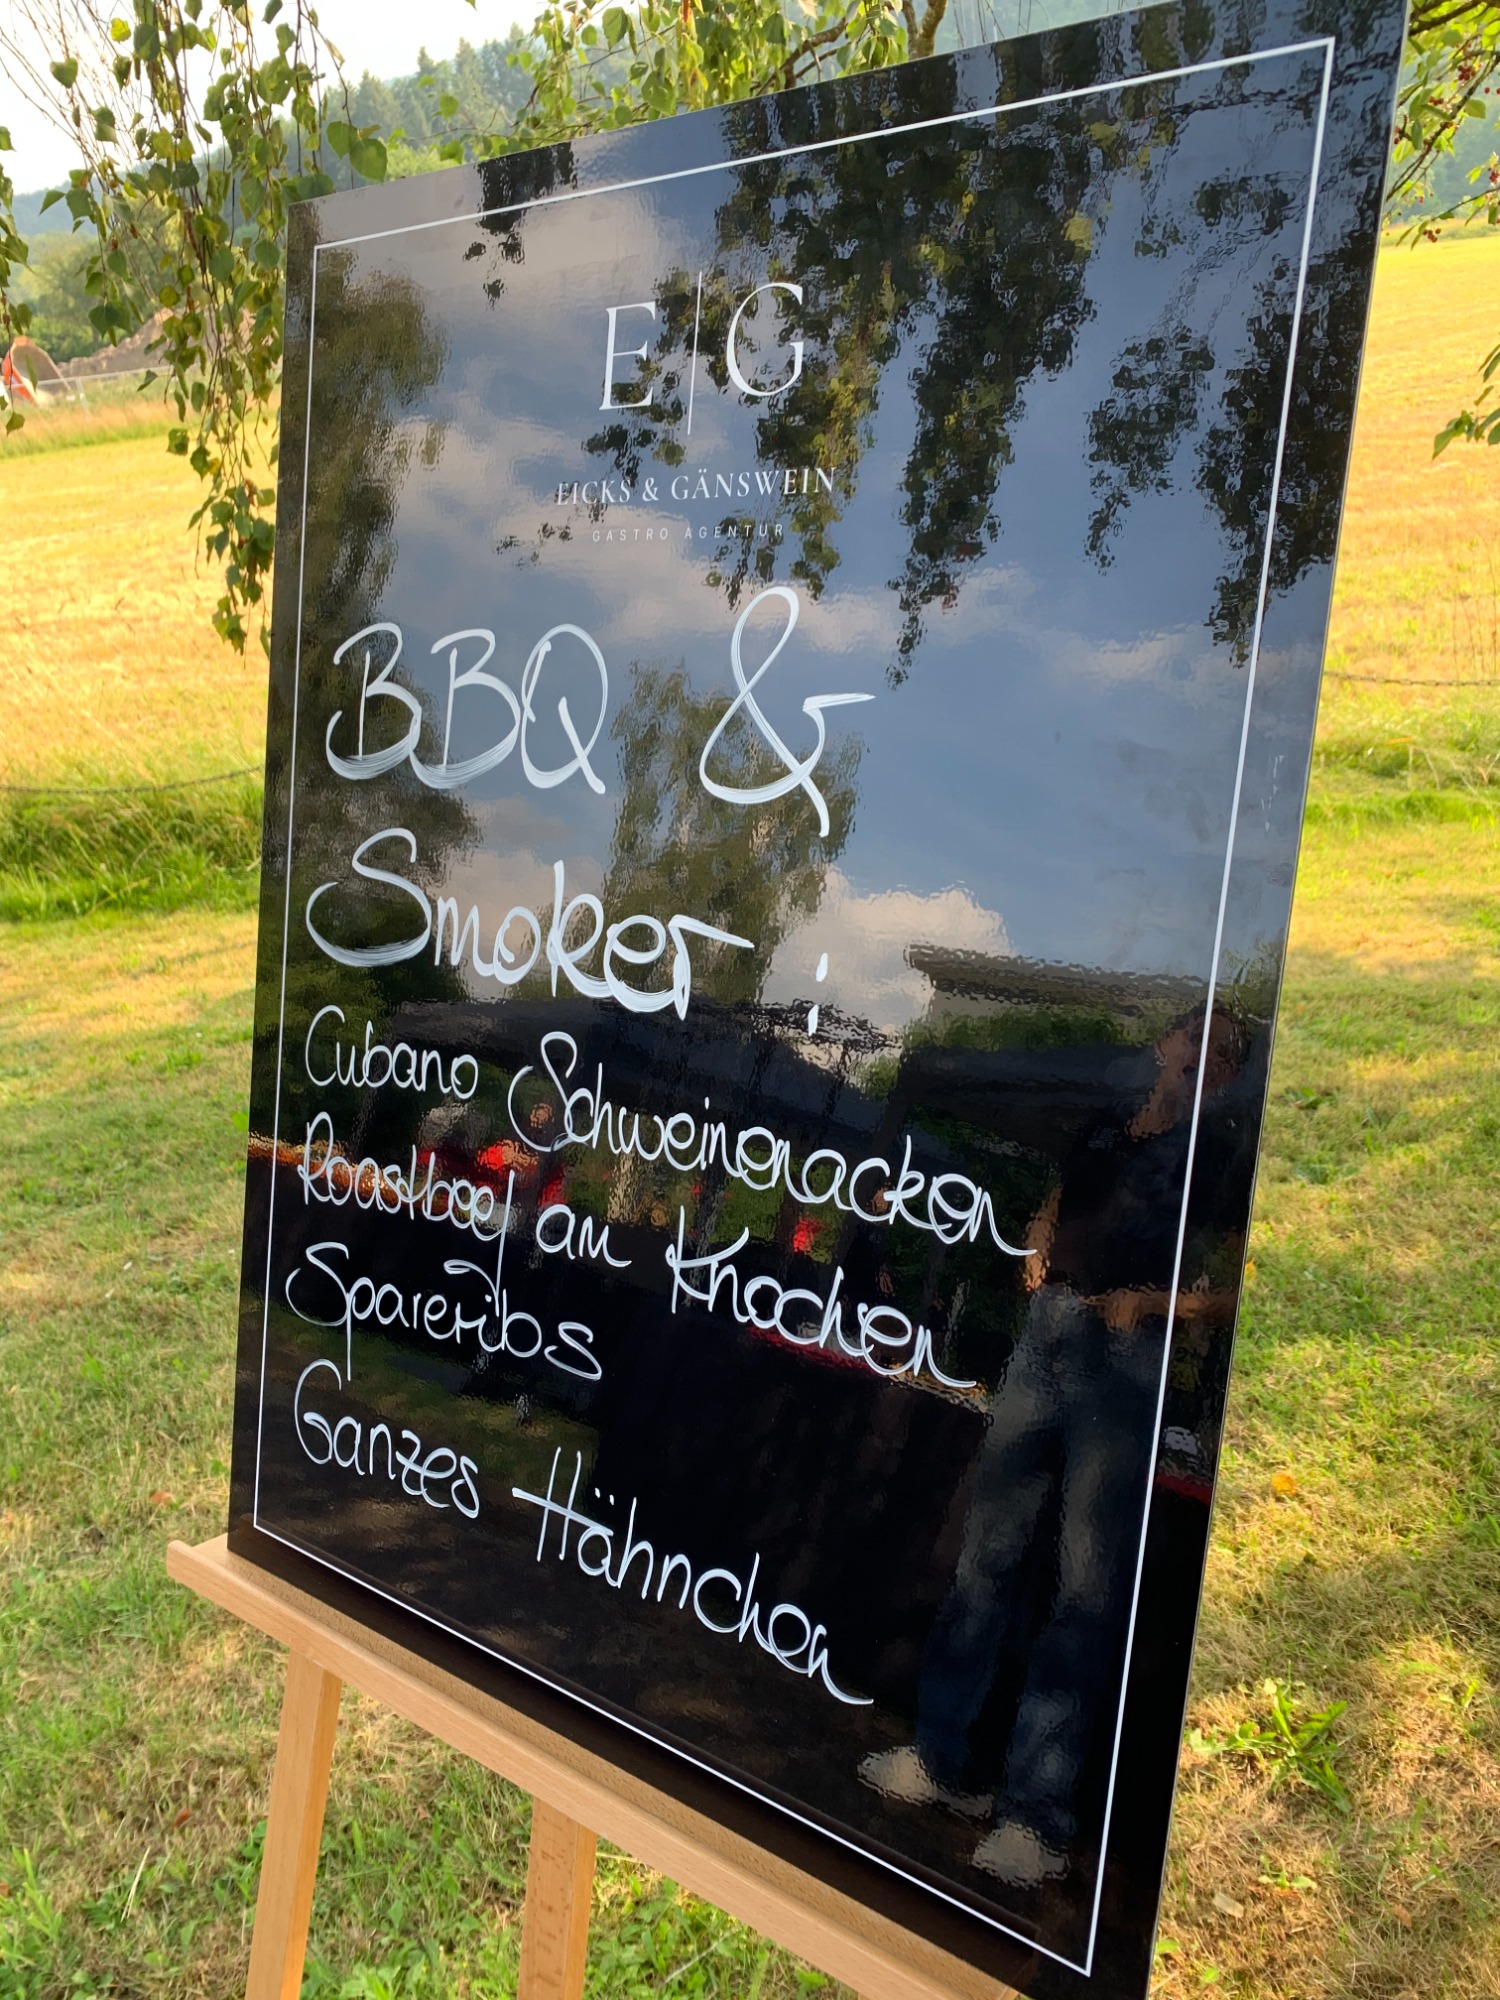 E|G
EICKS & GÄNSWEIN
GASTRO AGENTUR
BBQ &
Smoker :
Cubano Schweinenacken
Roastbeef am Knochen
Spareribs
Ganzes Hähnchen